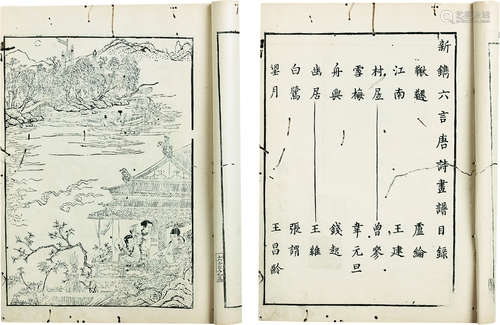 新鐫六言唐詩畫譜目錄
鞦韆 盧綸
江南 王建
村居 曾參
雪梅 韋元旦
舟興 錢起
幽居 王維
白鷺 張謂
望月 王昌齡